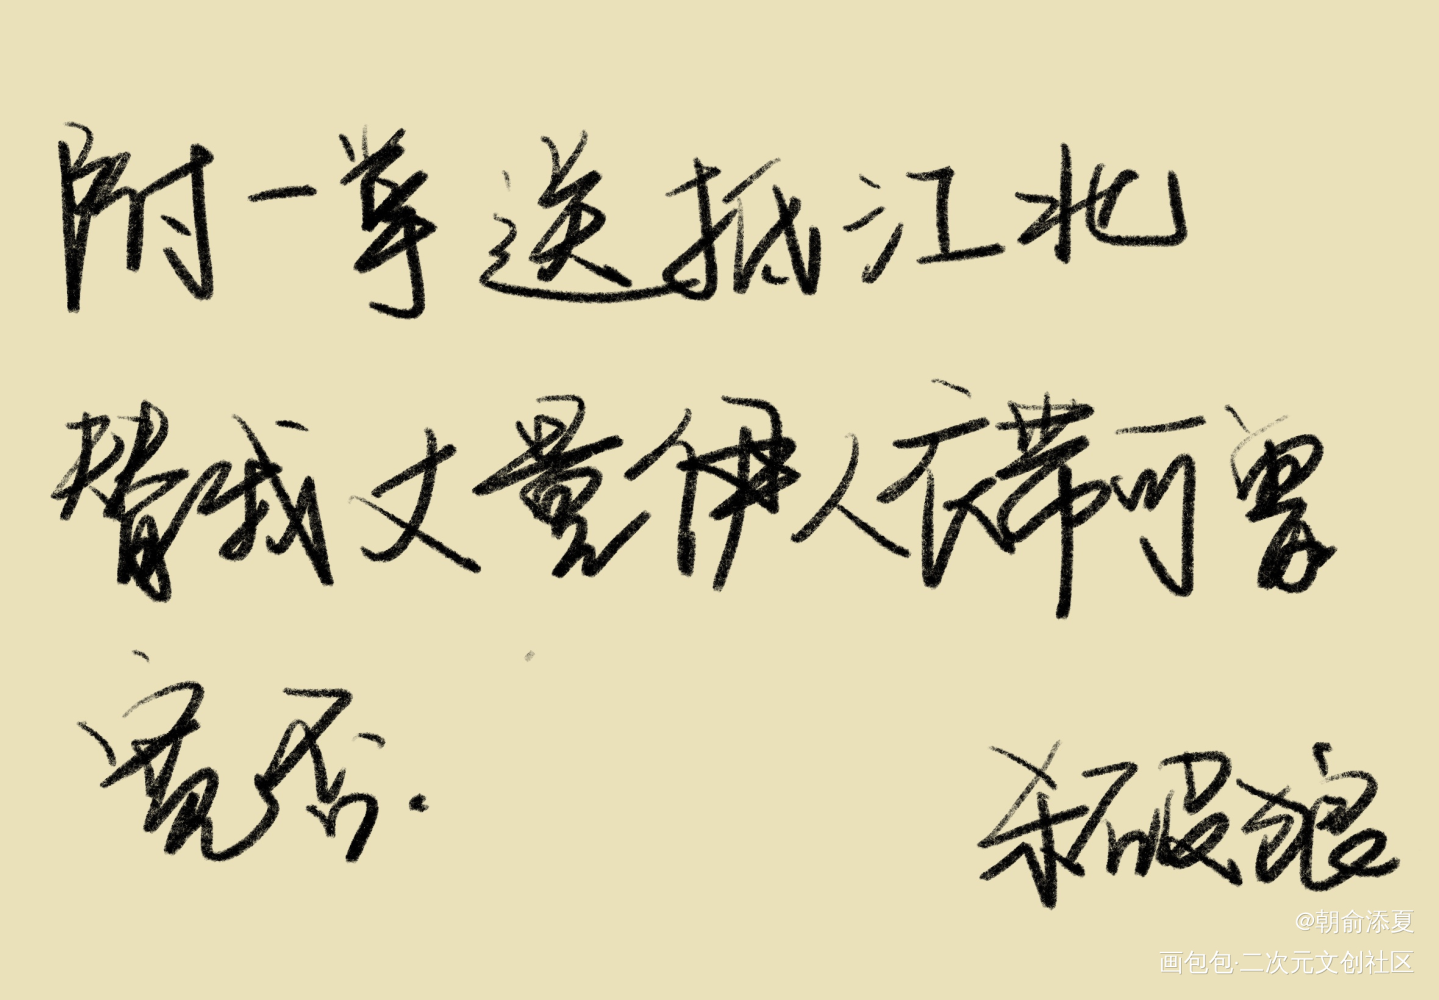 附一掌送抵江北
替我丈量伊人衣带可曾
宽否.
杀破狼
@朝俞添夏
画包包·二次元文创社区